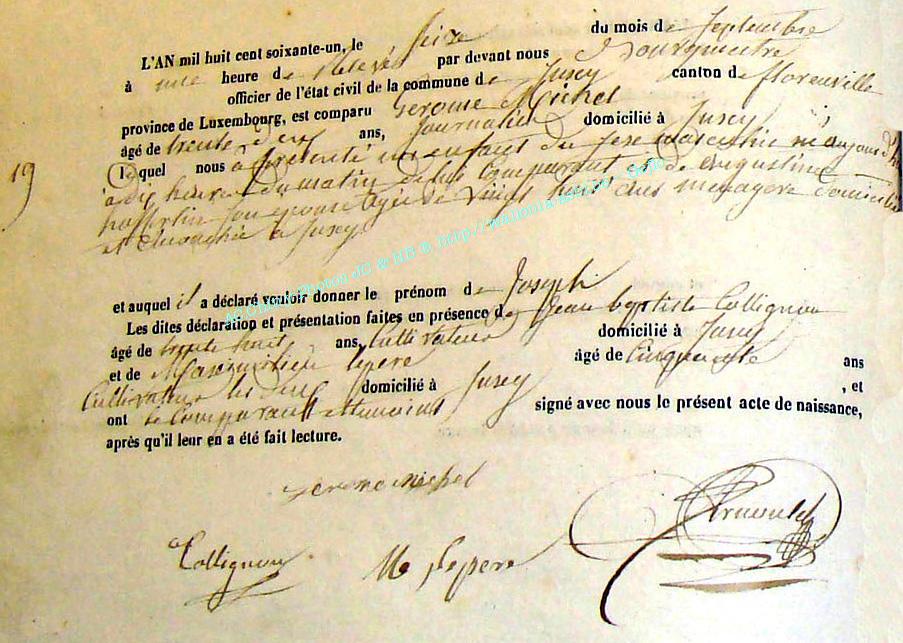 L'AN mil huit cent soixante-un, le seize du mois de Septembre
à une heure de relevée par devant nous Bourgmestre
officier de l'état civil de la commune de Jusey canton de florenville
province de Luxembourg, est comparu Gerome Michel
âgé de trente deux ans, journalier domicilié à Jusey
19
Lequel nous a présenté un enfant du sexe masculin né aujourd'hui
à dix heures du matin de lui comparant et de augustine
son épouse agée de vingt huit ans menagere domiciliée
et à Jusey
et auquel il a déclaré vouloir donner le prénom de Joseph
Les dites déclaration et présentation faites en présence de Jean baptiste Collignon
âgé de trente huit ans, Cultivateur domicilié à Jusey
et de lepere âgé de Cinquante ans
Cultivateur les deux domicilié à Jusey , et
ont le Comparant et temoins signé avec nous le présent acte de naissance,
après qu'il leur en a été fait lecture.
Gerome michel
Collignon
M lepere